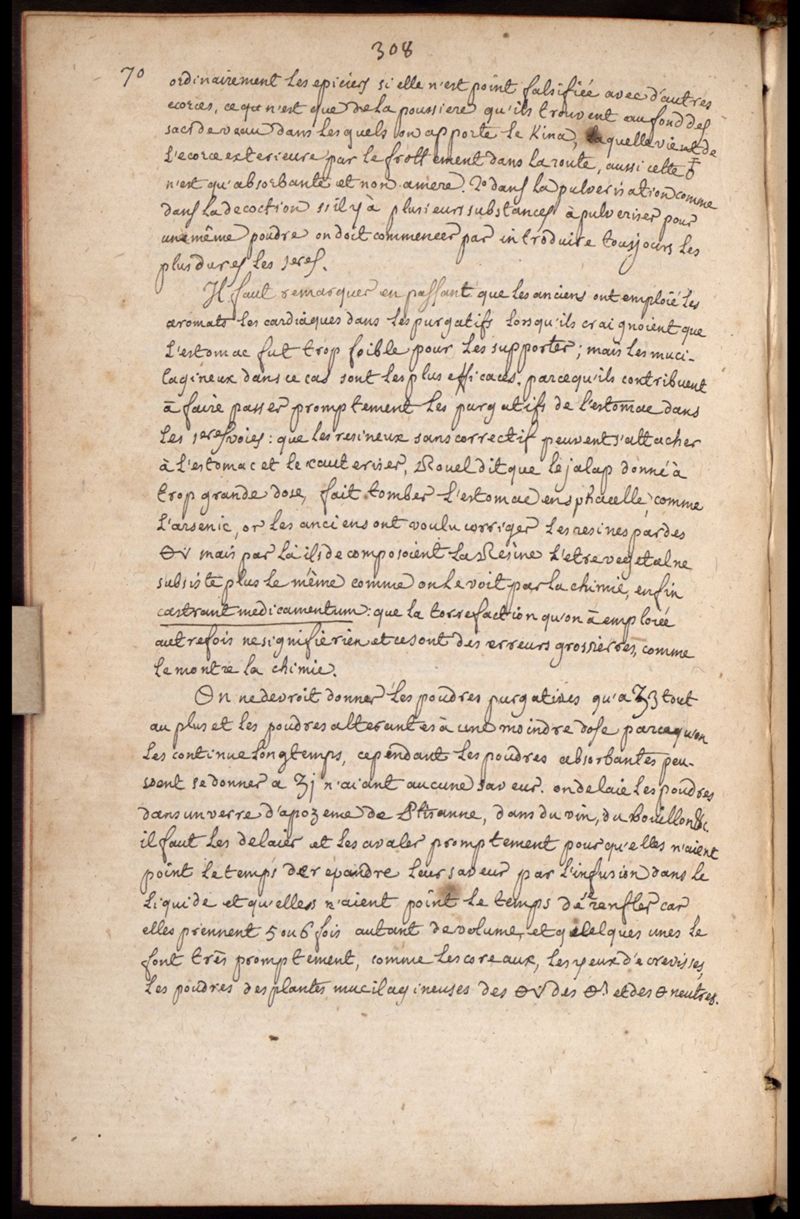 308
70
ordinairement les epiciers si elle n'est point falsifiée avec d'autres
ecorces, ce qui n'est que de la poussiere qu'ils trouvent au fond des
sacs de veau dans lesquels on apporte le Kina, laquelle vient de
l'ecorce exterieure par le frottement dans la route, aussi cette
n'est qu'absorbante et non amere. 2o dans la pulverisation comme
dans la decoction s'il y à plusieurs substances à pulveriser pour
une même poudre on doit commencer par introduire tousjours les
plus dures les 1eres.
Il faut remarquer en passant que les anciens ont emploié les
aromats les cardiaques dans les purgatifs lorsqu'ils craignoient que
l'estomac fut trop foible pour les supporter; mais les muci-
lagineux dans ce cas sont les plus efficaces. parcequ'ils contribuent
à faire passer promptement les purgatifs de l'estomac dans
les 1eres voies: que les resineux sans correctif peuvent s'attacher
à l'estomac et le cauteriser, Rouel dit que le jalap donné à
trop grande dose, fait tomber l'estomac en sphacelle, comme
l'arsenic, or les anciens ont voulu corriger les resines par des
mais par là ils decomposoient la Resine l'etre vegetal ne
subsiste plus le même comme on le voit par la chimie, enfin
castrant medicamentum: que la torrefaction qu'on à emploiée
autrefois ne signifie rien et ce sont des erreurs grossierres, comme
le montre la chimie.
On ne devroit donner les poudres purgatives qu'a ʒ3 tout
au plus et les poudres alterantes à une moindre dose parcequ'on
les continue longtemps, cependant les poudres absorbantes peu-
vent se donner a ʒj n'aiant aucune saveur. on delaie les poudres
dans un verre d'apozeme de Ptisanne, dans du vin, du bouillon &c
il faut les delaier et les avaler promptement pour qu'elles n'aient
point le temps de repandre leur saveur par l'infusion dans le
liquide et qu'elles n'aient point le temps de renfler car
elles prennent 5 ou 6 fois autant de volume, et quelques unes le
font très promptement, comme les coreaux, les yeux d'ecrevisses,
les poudres des plantes mucilagineuses des des et des neutres.